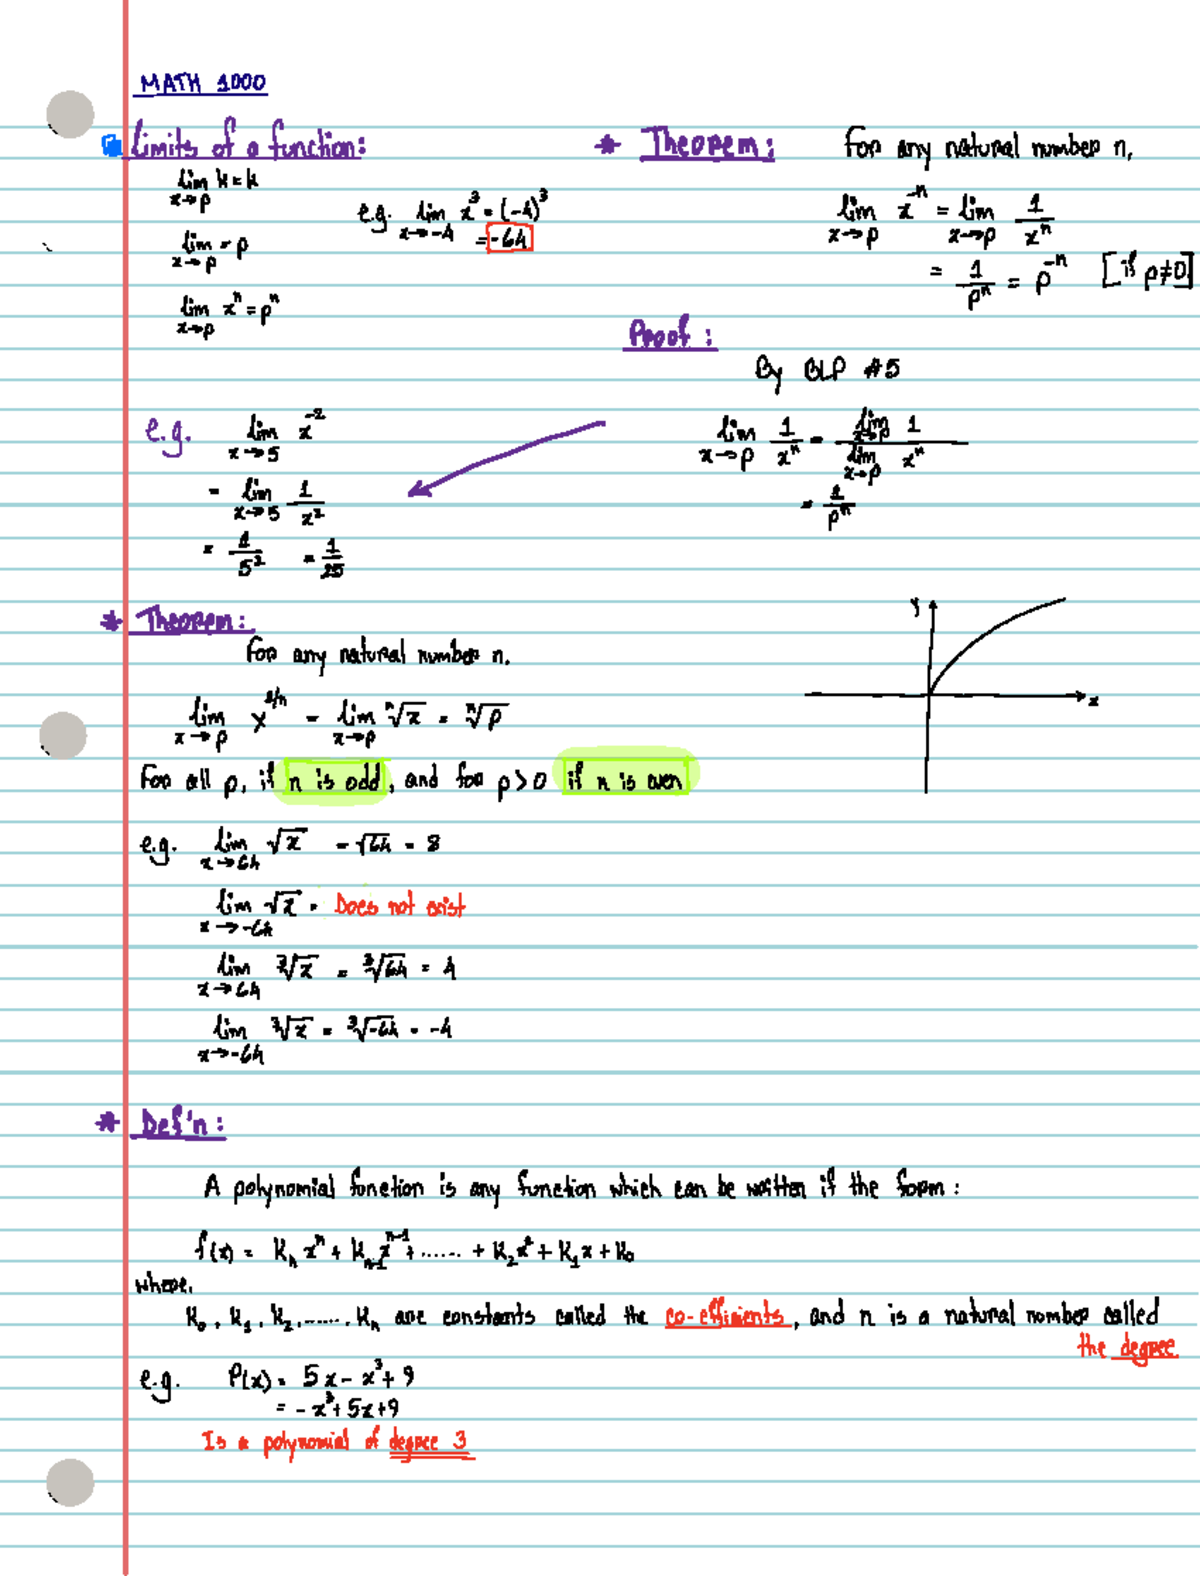 MATH 1000
Limits of a function:
lim k = k
x→p
lim = p
x→p
lim xⁿ = pⁿ
x→p
e.g. lim x³ = (-4)³
x→-4
= -64
* Theorem: For any natural number n,
lim x⁻ⁿ = lim 1/xⁿ
x→p x→p
= 1/pⁿ = p⁻ⁿ [if p≠0]
Proof:
By BLP #5
lim 1/xⁿ = lim 1 / lim xⁿ
x→p x→p x→p
= 1/pⁿ
e.g. lim x⁻²
x→5
= lim 1/x²
x→5
= 1/5² = 1/25
* Theorem:
For any natural number n.
lim x^(1/n) = lim ⁿ√x = ⁿ√p
x→p x→p
For all p, if n is odd, and for p>0 if n is even
y
x
e.g. lim √x = √64 = 8
x→64
lim √x = Does not exist
x→-64
lim ³√x = ³√64 = 4
x→64
lim ³√x = ³√-64 = -4
x→-64
* Def'n:
A polynomial function is any function which can be written if the form:
f(x) = kₙxⁿ + kₙ₋₁xⁿ⁻¹ + ...... + k₂x² + k₁x + k₀
where,
k₀, k₁, k₂, ......, kₙ are constants called the co-efficients, and n is a natural number called
the degree
e.g. P(x) = 5x - x³ + 9
= -x³ + 5x + 9
Is a polynomial of degree 3